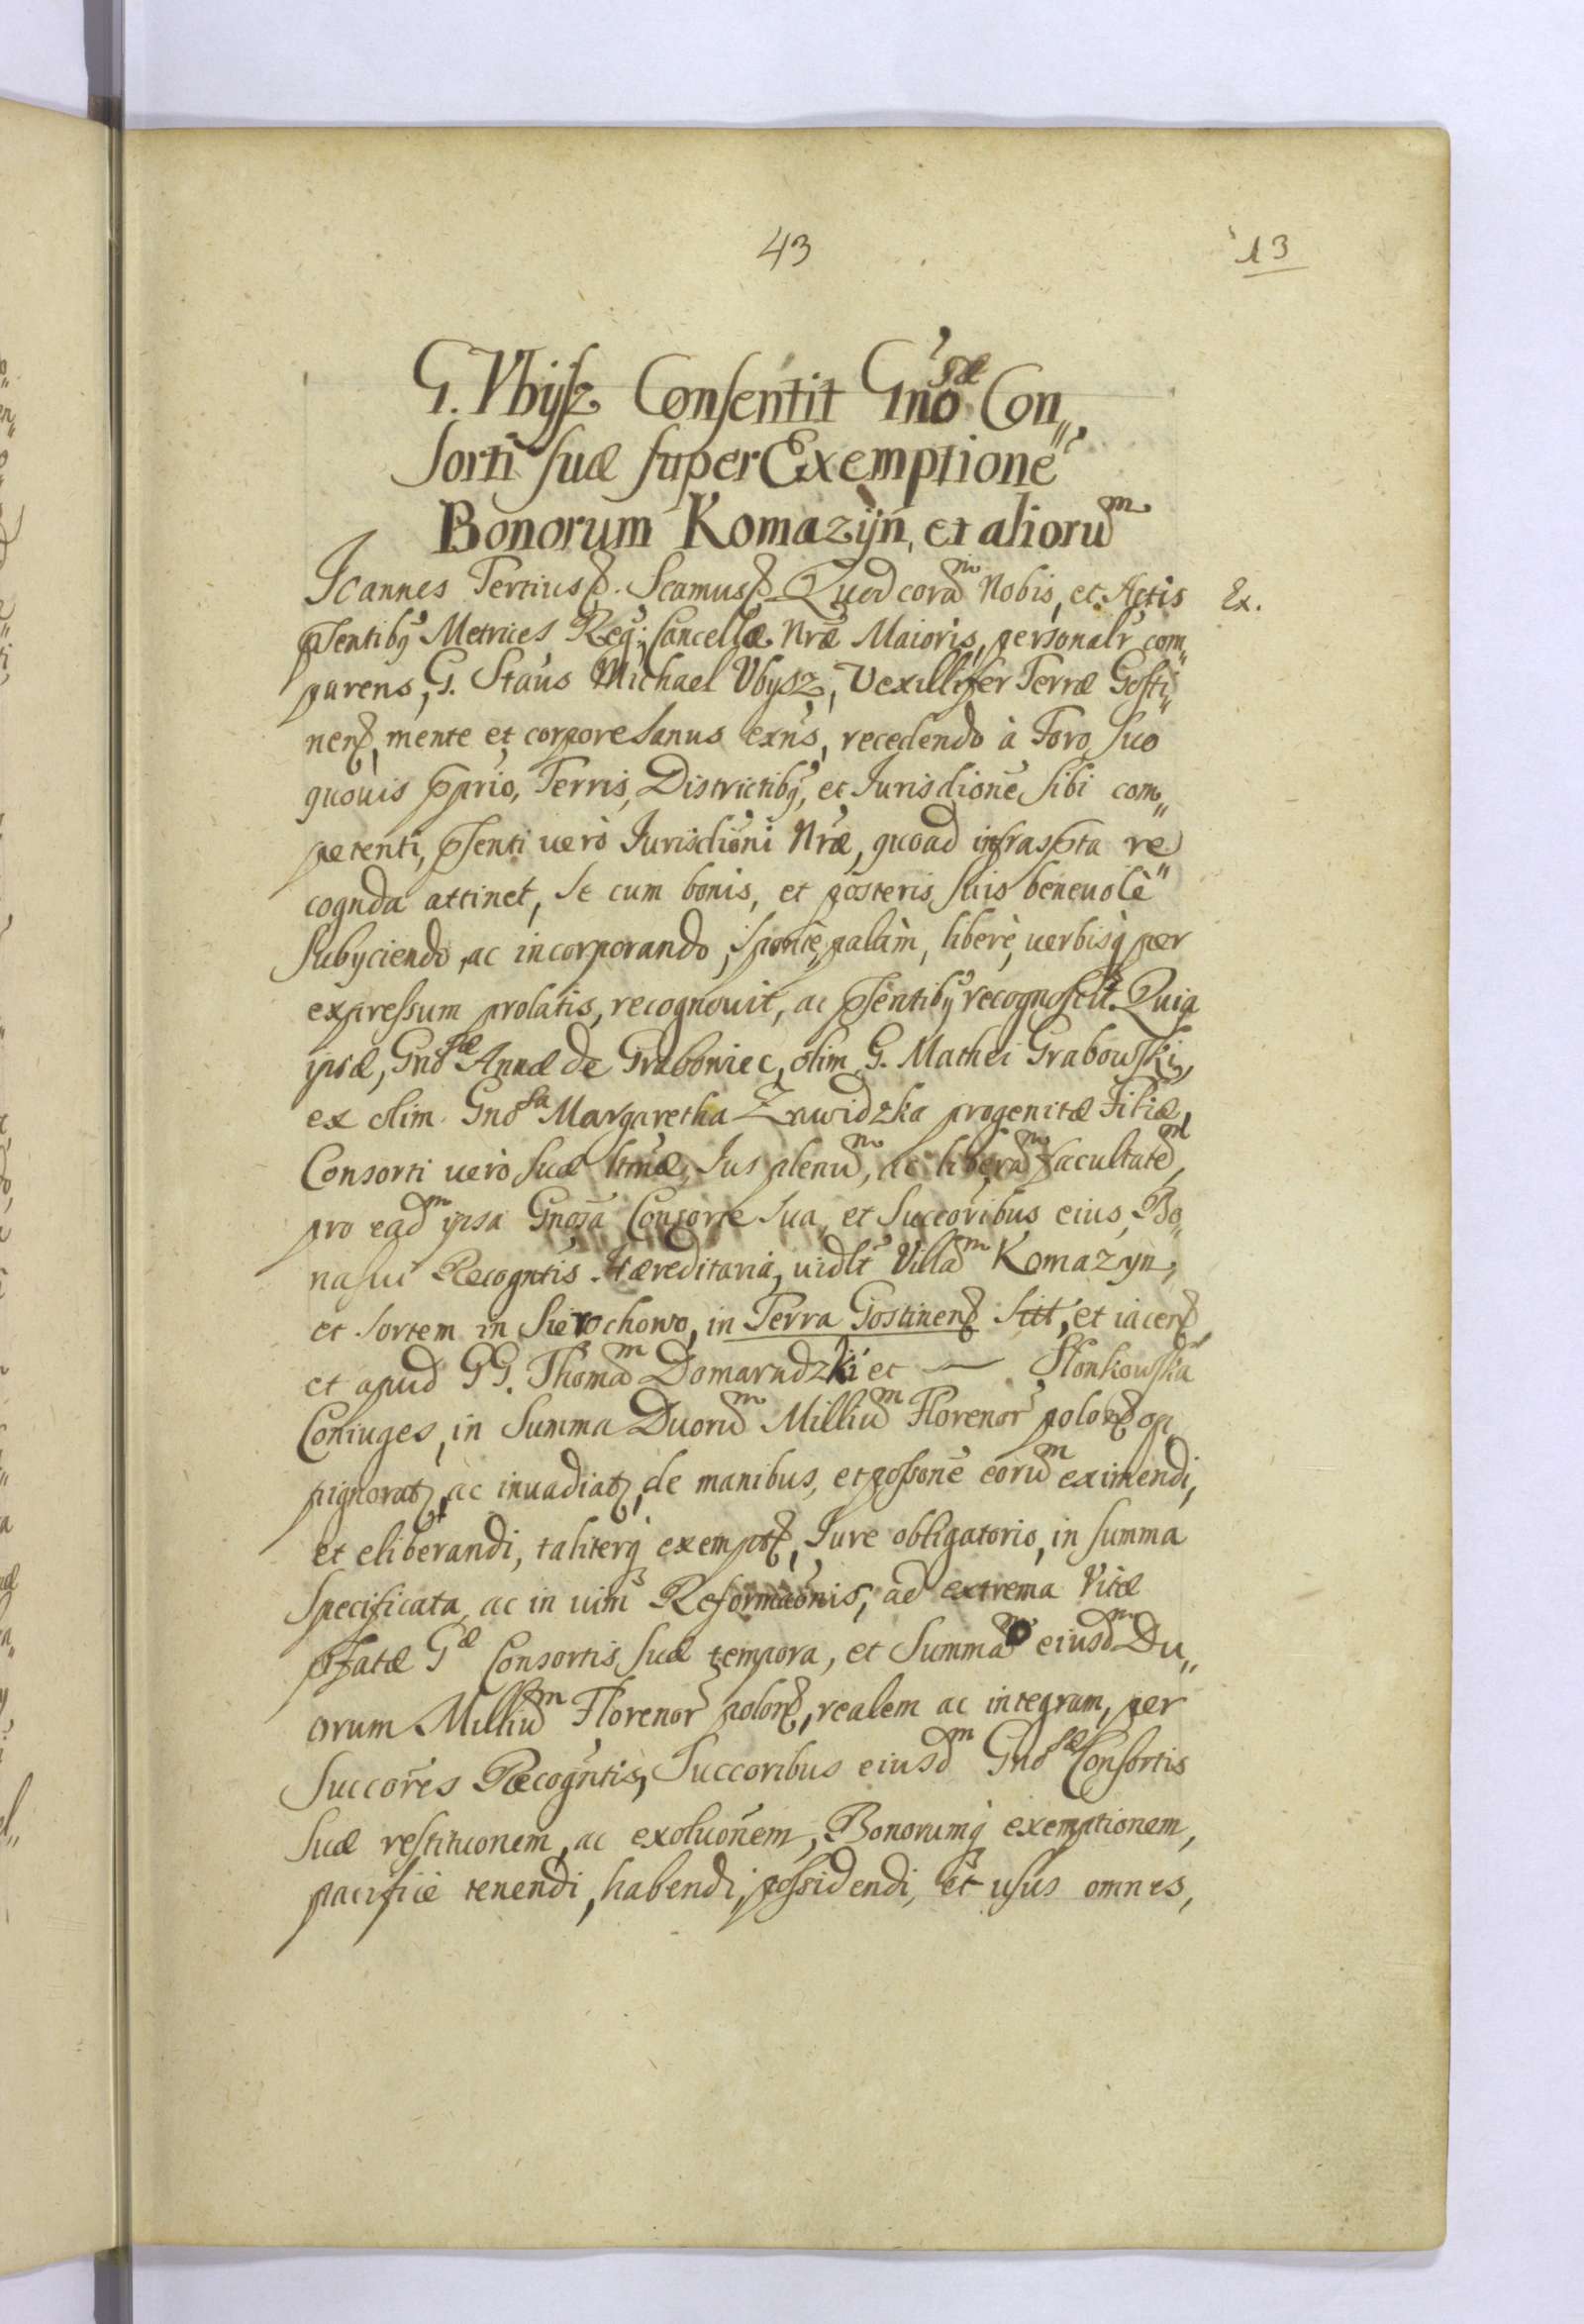 43
13
G. Vbysz Consentit Gnosæ Con„
sorti suæ super Exemptione
Bonorum Komazÿn, et aliorum
Ioannes Tertius p. Scamusp. Quod coram Nobis, et Actis
Ex.
psentibꝫ Metrices Regꝫ Cancellæ Nræ Maioris, personalr com„
parens, G. Staus Michael Vbysz, Vexillifer Terræ Gosti„
nens, mente et corpore sanus exns, recedendo à Foro suo
quouis pprio, Terris, Districtibꝫ, et Iurisdione sibi com„
petenti, psenti uerò Iurisdioni Nræ, quoad infraspta re„
cognda attinet, se cum bonis, et posteris suis beneuolè
subyciendo, ac incorporando, sponte, palàm, liberè, uerbisqꝫ per
expressum prolatis, recognouit, ac psentibꝫ recognoscit. Quia
ipsæ, Gnosæ Annæ de Graboniec, olim G. Mathei Grabowski,
ex olim Gnosa Margaretha Zawidzka progenitæ Filiæ,
Consorti uerò suæ ltmæ, Ius plenum, ac liberam facultatem,
pro eadm ipsa Gnosa Consorte sua, et Succoribus eius, Bo„
na sui Recogntis Hæreditaria, uidlt Villam Komazyn,
et sortem in Sierochowo, in Terra Gostinens sitt, et iacens,
et apud GG. Thomam Domaradzki et — Słonkowska
Coniuges, in summa Duorum Millium Florenor polons op„
pignorat, ac inuadiat, de manibus, et possone eorum eximendi,
et eliberandi, taliterqꝫ exempt, Iure obligatorio, in summa
specificata, ac in uim Reformaonis, ad extrema Vitæ
pfatæ Gæ Consortis suæ tempora, et summæ eiusdm Du„
orum Millium Florenor polons, realem ac integram, per
Succores Recogntis, Succoribus eiusdm Gnosæ Consortis
suæ restituonem, ac exoluonem, Bonorumqꝫ exemptionem,
pacificè tenendi, habendi, possidendi, et usus omnes,